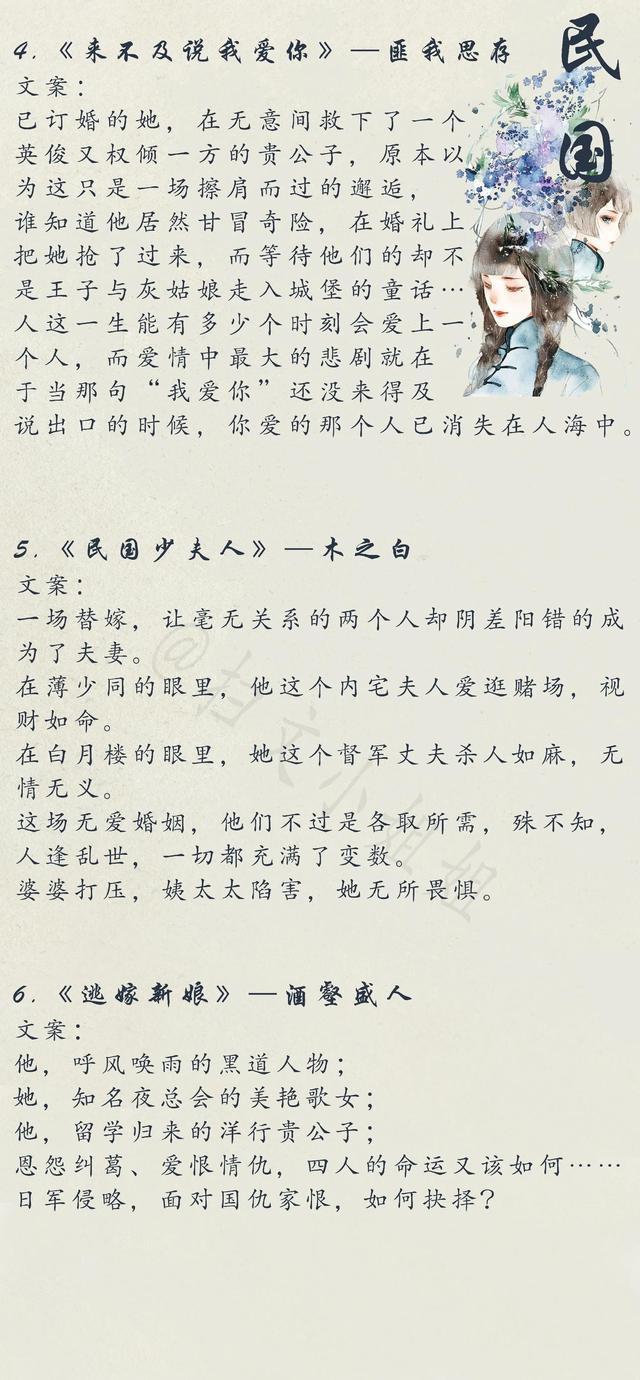 民国
4.《来不及说我爱你》—匪我思存
文案：
已订婚的她，在无意间救下了一个
英俊又权倾一方的贵公子，原本以
为这只是一场擦肩而过的邂逅，
谁知道他居然甘冒奇险，在婚礼上
把她抢了过来，而等待他们的却不
是王子与灰姑娘走入城堡的童话…
人这一生能有多少个时刻会爱上一
个人，而爱情中最大的悲剧就在
于当那句“我爱你”还没来得及
说出口的时候，你爱的那个人已消失在人海中。
5.《民国少夫人》—木之白
文案：
一场替嫁，让毫无关系的两个人却阴差阳错的成
为了夫妻。
在薄少同的眼里，他这个内宅夫人爱逛赌场，视
财如命。
在白月楼的眼里，她这个督军丈夫杀人如麻，无
情无义。
这场无爱婚姻，他们不过是各取所需，殊不知，
人逢乱世，一切都充满了变数。
婆婆打压，姨太太陷害，她无所畏惧。
@扫文小姐姐
6.《逃嫁新娘》—酒壑盛人
文案：
他，呼风唤雨的黑道人物；
她，知名夜总会的美艳歌女；
他，留学归来的洋行贵公子；
恩怨纠葛、爱恨情仇，四人的命运又该如何……
日军侵略，面对国仇家恨，如何抉择？